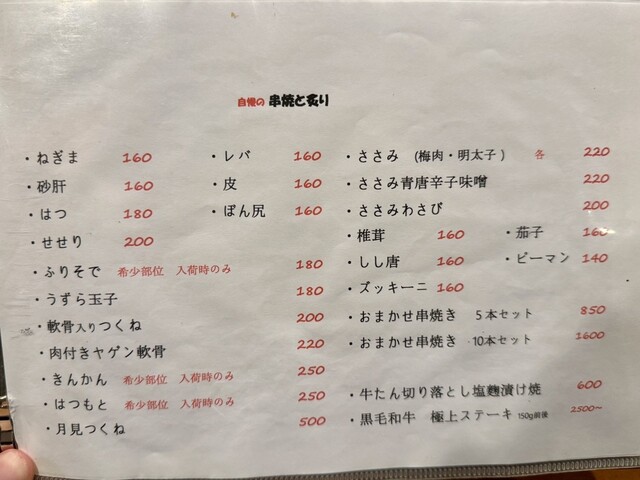 自慢の 串焼と炙り
・ねぎま 160
・レバ 160
・砂肝 160
・皮 160
・はつ 180
・ぼん尻 160
・せせり 200
・ふりそで 希少部位 入荷時のみ 180
・うずら玉子 180
・軟骨入りつくね 200
・肉付きヤゲン軟骨 220
・きんかん 希少部位 入荷時のみ 250
・はつもと 希少部位 入荷時のみ 250
・月見つくね 500
・ささみ (梅肉・明太子) 各 220
・ささみ青唐辛子味噌 220
・ささみわさび 200
・椎茸 160
・茄子 160
・しし唐 160
・ピーマン 140
・ズッキーニ 160
・おまかせ串焼き 5本セット 850
・おまかせ串焼き 10本セット 1600
・牛たん切り落とし塩麴漬け焼 600
・黒毛和牛 極上ステーキ 150g前後 2500～